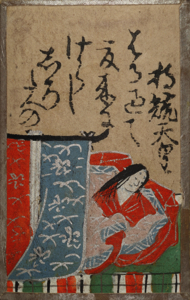 持統天皇
はる過て
夏来に
けらし
しろ
たへの